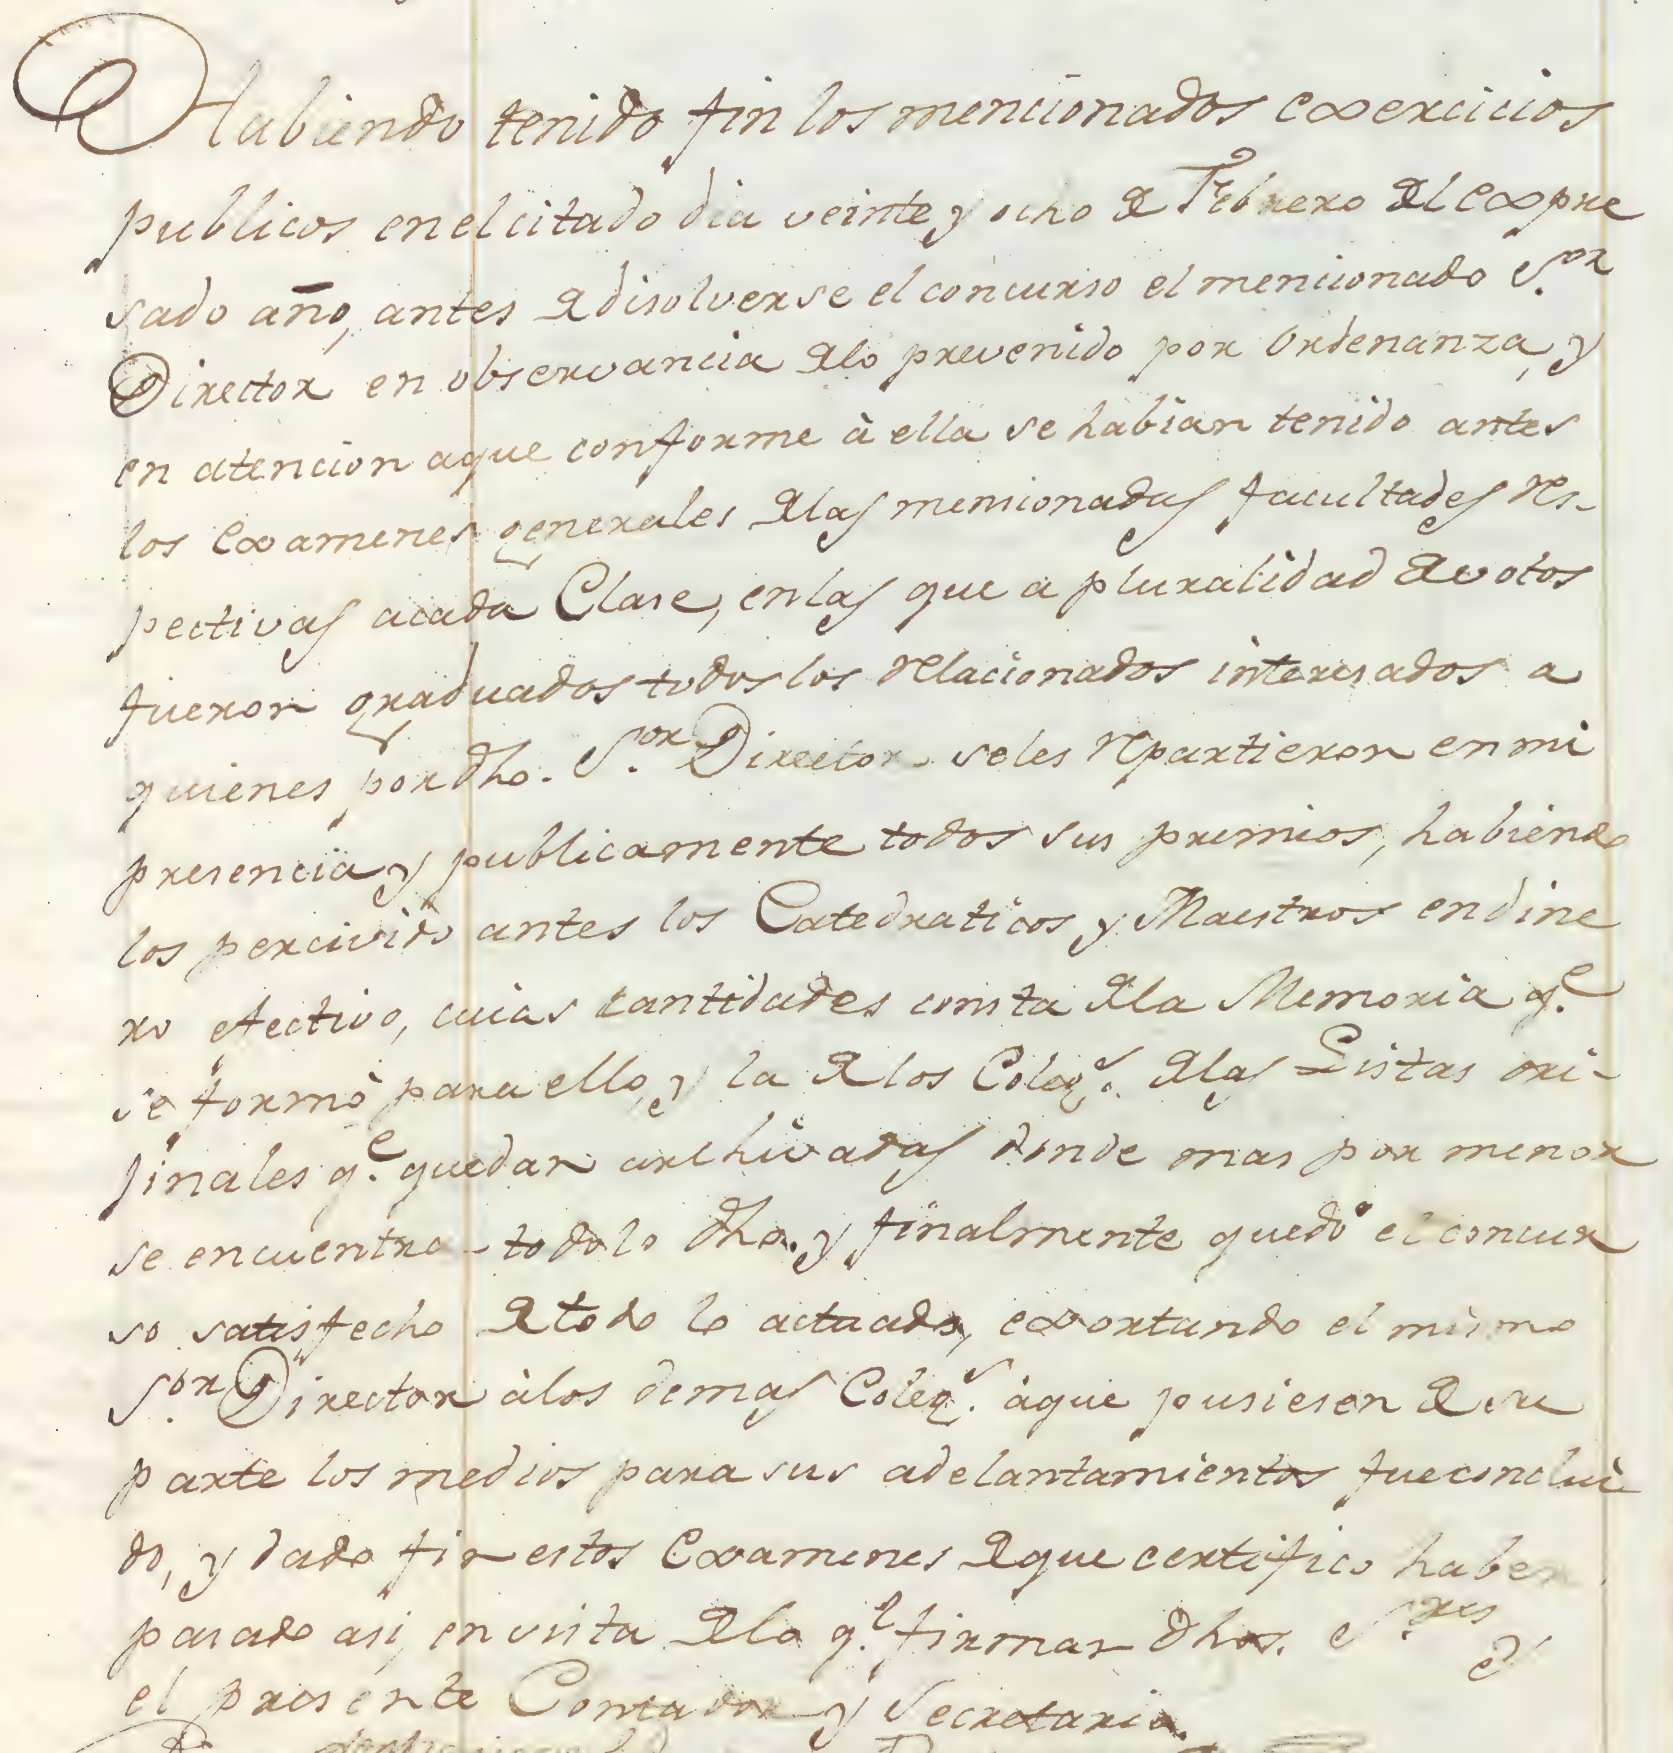 Habiendo tenido fin los mencionados exercicios
publicos en el citado dia veinte y ocho de Febrero del expre
sado año, antes de disolverse el concurso el mencionado S.or
Director en observancia de lo prevenido por Ordenanza, y
en atencion aque conforme à ella se habian tenido antes
los Examenes generales de las mencionadas facultades res-
pectivas acada Clase, en las que a pluralidad de votos
fueron graduados todos los relacionados interesados a
quienes por dho. S.or Director se les repartieron en mi
presencia y publicamente todos sus premios, habiendo
los percivido antes los Catedraticos y Maestros en dine
ro efectivo, cuias cantidades consta de la Memoria q.e
se formò para ello, y la de los Coleg.s de las Listas ori-
jinales q.e quedan archivadas donde mas por menor
se encuentra todo lo dho. y finalmente quedò el concur
so satisfecho de todo lo actuado, exortando el mismo
S.or Director àlos demas Coleg.s àque pusiesen de su
parte los medios para sus adelantamientos fue conclui
do, y dado fin estos Examenes de que certifico haber
pasado asi, en vista de lo q.l firman dhos. S.res y
el presente Contador y Secretario.